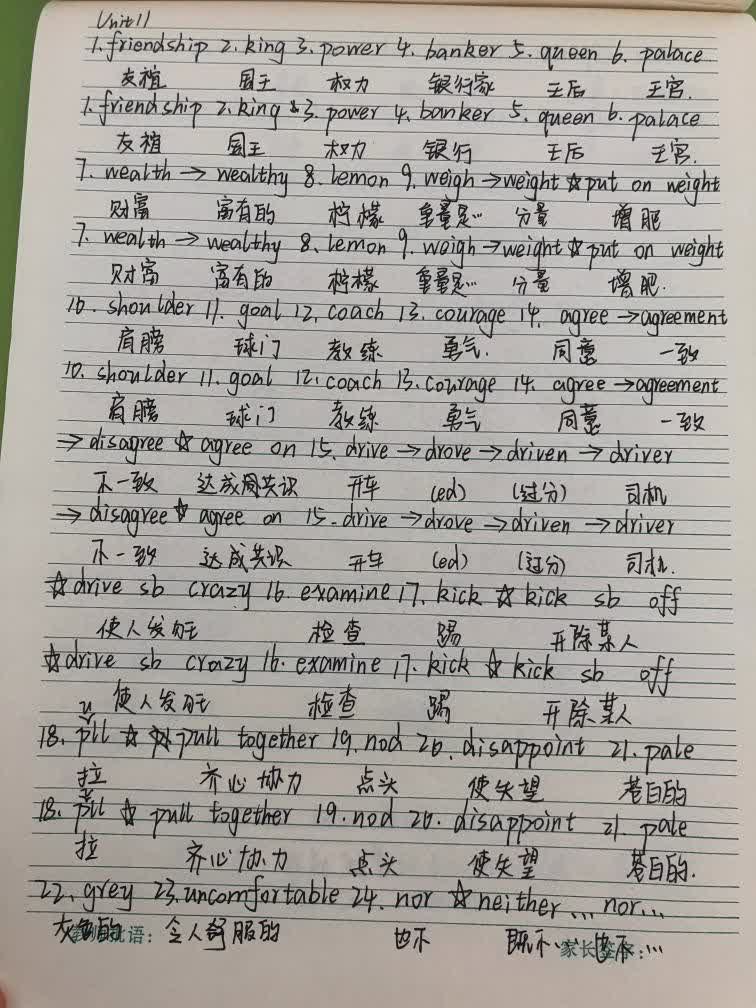 Unit 11
1. friendship 2. king 3. power 4. banker 5. queen 6. palace
友谊 国王 权力 银行家 王后 王宫.
1. friendship 2. king 3. power 4. banker 5. queen 6. palace
友谊 国王 权力 银行 王后 王宫.
7. wealth → wealthy 8. lemon 9. weigh → weight ☆ put on weight
财富 富有的 柠檬 重量是… 分量 增肥
7. wealth → wealthy 8. lemon 9. weigh → weight ☆ put on weight
财富 富有的 柠檬 重量是… 分量 增肥.
10. shoulder 11. goal 12. coach 13. courage 14. agree → agreement
肩膀 球门 教练 勇气. 同意 一致
10. shoulder 11. goal 12. coach 13. courage 14. agree → agreement
肩膀 球门 教练 勇气 同意 一致
→ disagree ☆ agree on 15. drive → drove → driven → driver
不一致 达成共识 开车 (ed) (过分) 司机
→ disagree ☆ agree on 15. drive → drove → driven → driver
不一致 达成共识 开车 (ed) (过分) 司机.
☆ drive sb crazy 16. examine 17. kick ☆ kick sb off
使人发旺 检查 踢 开除某人
☆ drive sb crazy 16. examine 17. kick ☆ kick sb off
使人发旺 检查 踢 开除某人
18. pull ☆ pull together 19. nod 20. disappoint 21. pale
拉 齐心协力 点头 使失望 苍白的
18. pull ☆ pull together 19. nod 20. disappoint 21. pale
拉 齐心协力 点头 使失望 苍白的.
22. grey 23. uncomfortable 24. nor ☆ neither ... nor...
灰色的 令人舒服的 也不 既不… 也不…